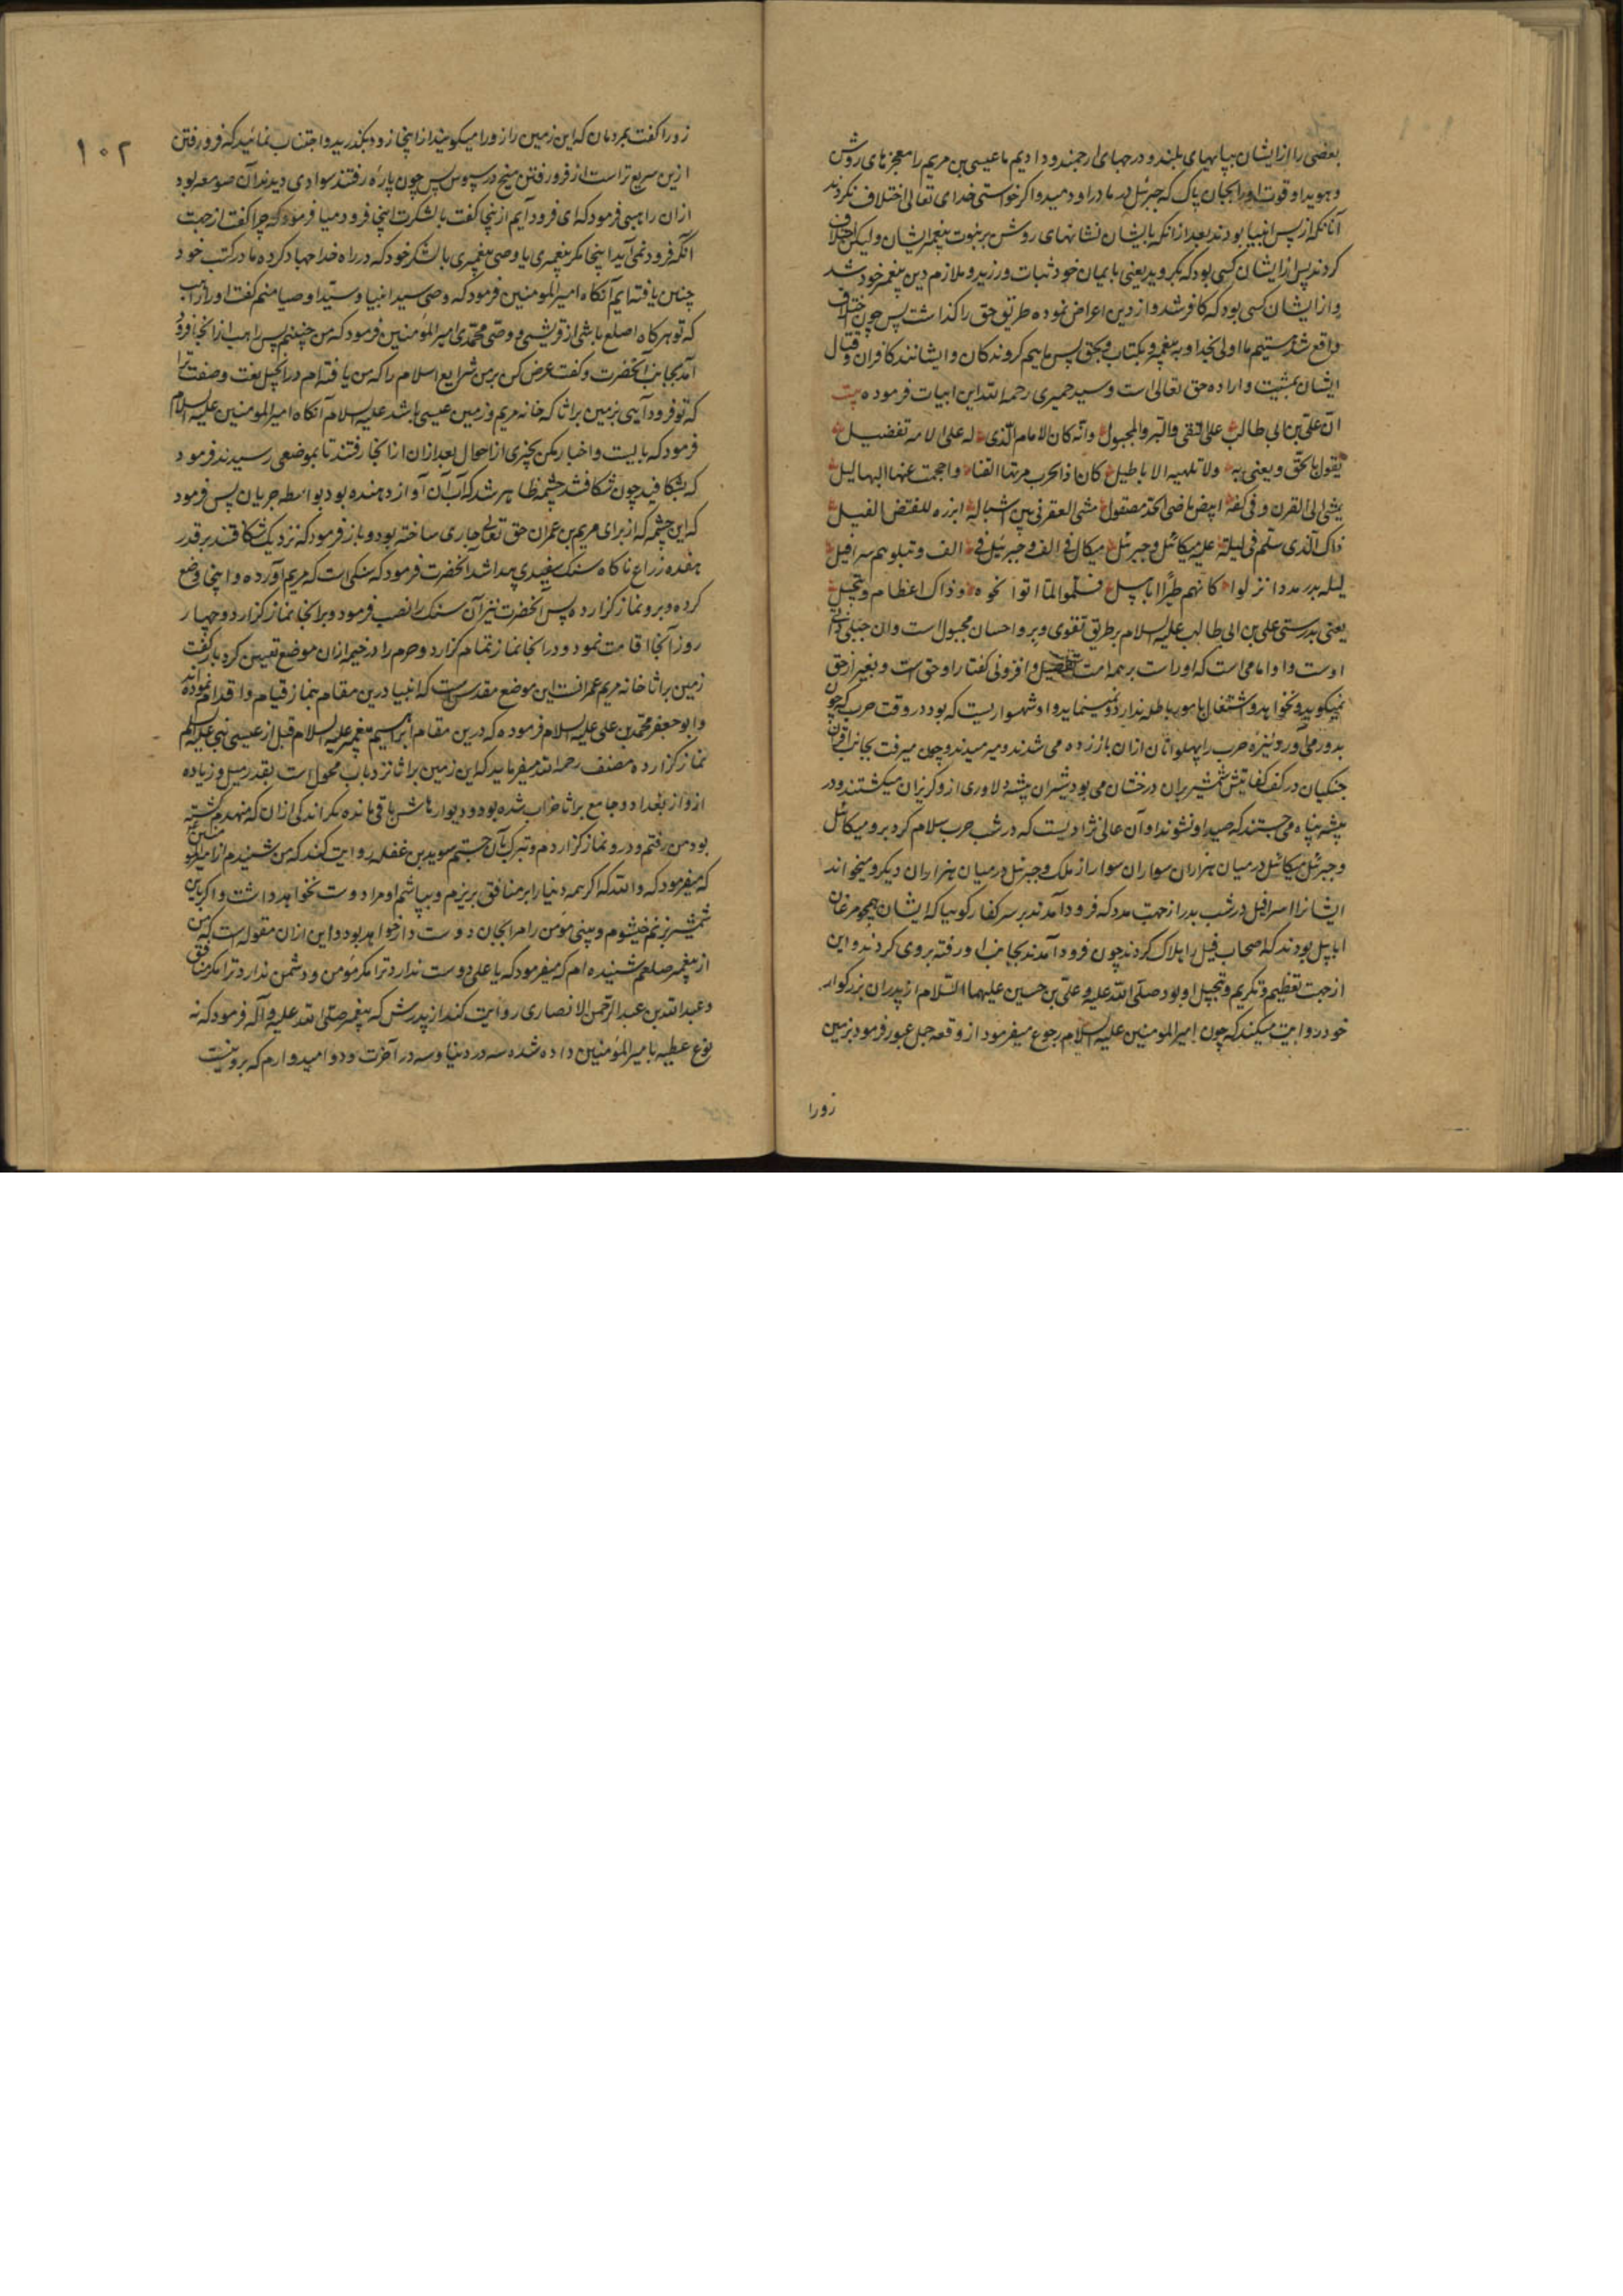 بعضی را از ایشان بپایهای بلند و درجهای ارجمند و دادیم ما عیسی بن مریم را معجزهای روشن
و هویدا و قوت او را بجان پاک که جبرئیل در مادر او دمید و اگر خواستی خدای تعالی اختلاف نکردند
آنانکه از پس انبیا بودند بعد از انکه بایشان نشانهای روشن بر نبوت پیغمبر ایشان و لیکن اختلاف
کردند پس از ایشان کسی بود که بگروید یعنی بایمان خود ثبات ورزید و ملازم دین پیغمبر خود شد
و از ایشان کسی بود که کافر شد و از دین اعراض نموده طریق حق را گذاشت پس چون اختلاف
واقع شد هستیم ما اولی بخدا و به پیغمبر و بکتاب و بحق پس ماییم گروندکان و ایشانند کافران و قتال
ایشان بمشیت و اراده حق تعالی است و سید حمیری رحمه الله این ابیات فرموده بیت
ان علی بن ابی طالب علی التقی والبر والمجبول وانه کان الامام الذی له علی الامة تفضیل
یقول بالحق و یعنی به ولا تلهیه الاباطیل کان اذا الحرب مرتها القنا واحجمت عنها البهالیل
یمشی الی القرن و فی کفه ابیض ماضی الحد مصقول مشی العفرنی بین اشباله ابرزه للقنص الغیل
ذاک الذی سلم فی لیلة علیه میکائل وجبرئل میکال فی الف وجبرئیل فی الف و یتلوهم سرافیل
لیلة بدر مددا نزلوا کانهم طیرا ابابیل فسلموا لما اتوا نحوه و ذاک اعظام و تبجیل
یعنی بدرستی علی بن ابی طالب علیه السلام بر طریق تقوی و بر و احسان مجبول است وان جبلی ذات
اوست و او امامی است که او راست بر همه امت تفضیل و افزونی گفتار او حق است و بغیر از حق
نمیگوید و نخواهد و اشتغال بامور باطله ندارد و نمینماید و او شهسواریست که بود در وقت حرب که چون
بدور می آورد نیزه حرب را پهلوانان ازان باز زده می شدند و میرمیدند و چون میرفت بجانب اقران
جنکیان در کف کفایتش شمشیر بران درخشان می بود شیران بیشه دلاوری از و گریزان میکشتند و در
بیشه پناه می جستند که صید او نشوند او آن عالی نژادیست که در شب حرب سلام کرد برو میکائل
و جبرئل میکائل در میان هزاران سواران سوار از ملک و جبرئل در میان هزاران دیگر و میخواند
ایشانرا اسرافیل در شب بدر از جهت مدد که فرود آمدند بر سر کفار گوییا که ایشان همچو مرغان
ابابیل بودند که اصحاب فیل را هلاک کردند چون فرود آمدند بجانب او رفته بروی کردند و این
از جهت تعظیم و تکریم و تبجیل او بود صلی الله علیه و علی بن حسین علیهما السلام از پدران بزرگوار
خود روایت میکند که چون امیر المومنین علیه السلام رجوع میفرمود از وقعه جمل عبور فرمود بزمین
زورا
۱۰۲
زورا گفت بمردمان که این زمین را زورا میگویند از اینجا زود بگذرید و اجتناب نمائید که فرو رفتن
ازین سریع تر است از فرو رفتن میخ در سبوس پس چون پاره رفتند سوادی دیدند آن صومعه بود
ازان راهبی فرمود که ای فرود آیم از اینجا گفت با لشکرت اینجا فرود میا فرمود که چرا گفت از جهت
آنکه فرود نمی آید اینجا مکر پیغمبری یا وصی پیغمبری با لشکر خود که در راه خدا جهاد کرده ما در کتب خود
چنین یافته ایم آنکاه امیر المومنین فرمود که وصی سید انبیا و سید اوصیا منم گفت او را راهب
که تو هر کاه اصلع باشی از قریشی و وصی محمدی امیر المؤمنین فرمود که من چنینم پس راهب از انجا فرود
آمد بجانب آنحضرت و گفت عرض کن بر من شرایع اسلام را که من یافته ام در انجیل نعت و صفت ترا
که تو فرود آیی بزمین براثا که خانه مریم و زمین عیسی باشد علیه السلام آنکاه امیر المومنین علیه السلام
فرمود که بایست و اخبار مکن بچیزی از احوال بعد ازان از انجا رفتند تا بموضعی رسیدند فرمود
که بشکافید چون شکافتند چشمه ظاهر شد که آب آن آواز دهنده بود بواسطه جریان پس فرمود
که این چشمه که از برای مریم بن عمران حق تعالی جاری ساخته بود و باز فرمود که نزدیک شکافتند بر قدر
هفده ذراع ناکاه سنک سفیدی پیدا شد آنحضرت فرمود که سنکی است که مریم آورده و اینجا وضع
کرده و برو نماز گزارده پس آنحضرت نیز آن سنک را نصب فرمود و بر انجا نماز گزارد و چهار
روز آنجا اقامت نمود و در انجا نماز تمام گزارد و حرم را در خیمه ازان موضع تعیین کرد باز گفت
زمین براثا خانه مریم عمرانست این موضع مقدسست که انبیا درین مقام بنماز قیام و اقدام نموده اند
و ابو جعفر محمد بن علی علیه السلام فرموده که درین مقام ابراهیم پیغمبر علیه السلام قبل از عیسی نبی علیه السلام
نماز گزارده مصنف رحمه الله میفرماید که این زمین براثا نزد باب محول است بقدر میل و زیاده
ازو از بغداد و جامع براثا خراب شده بود و دیوارهاش باقی مانده مکر اندکی ازان که منهدم گشته
بود من رفتم و درو نماز گزاردم و تبرک بآن جستم سوید بن غفله روایت کند که من شنیدم از امیر المؤمنین
که میفرمود که والله که اگر همه دنیا را بر منافق بریزم و بپاشم او مرا دوست نخواهد داشت و اگر باین
شمشیر بزنم خیشوم و بینی مؤمن را مرا بجان دوست دار خواهد بود و این ازان مقوله است که من
از پیغمبر صلعم شنیده ام که میفرمود که یا علی دوست ندارد ترا مکر مؤمن و دشمن ندارد ترا مکر منافق
و عبد الله بن عبد الرحمن الانصاری روایت کند از پدرش که پیغمبر صلی الله علیه و آله فرمود که نه
نوع عطیه بامیر المومنین داده شده سه در دنیا و سه در آخرت و دو امیدوارم که بروینست